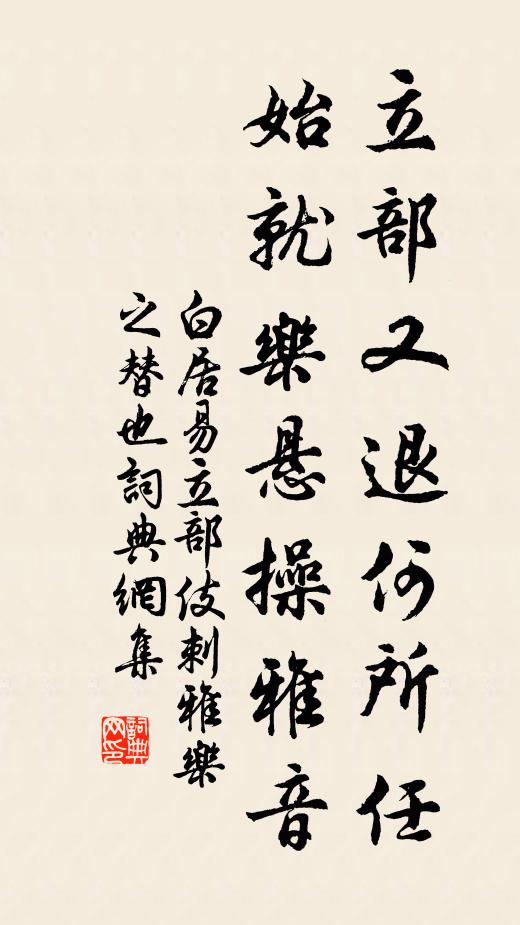 立部又退何所任
始就樂悬操雅音
白居易立部伎刺雅樂
之替也詞典網集
詞典
网印